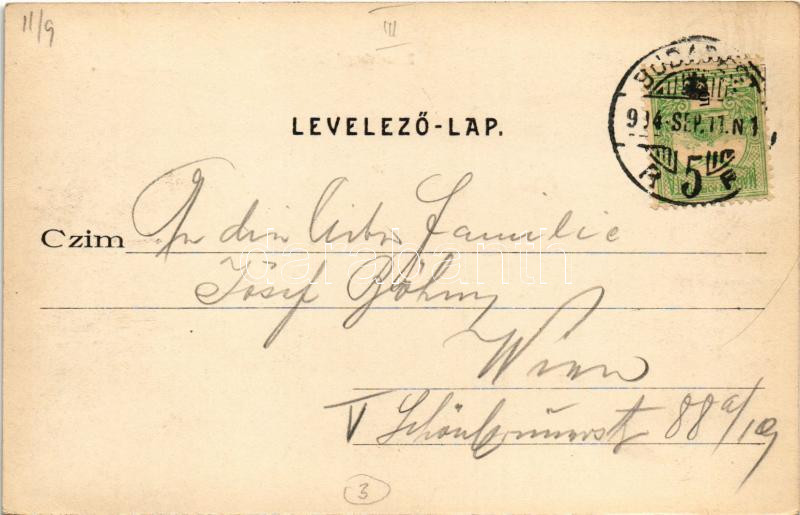 11/9
III
BUDAPEST
904 SEP. 11. N 1
5
LEVELEZŐ-LAP.
Czim An die Familie
Josef Böhm
Wien
V Schönbrunnerstr 88 a/19
3
darabanth